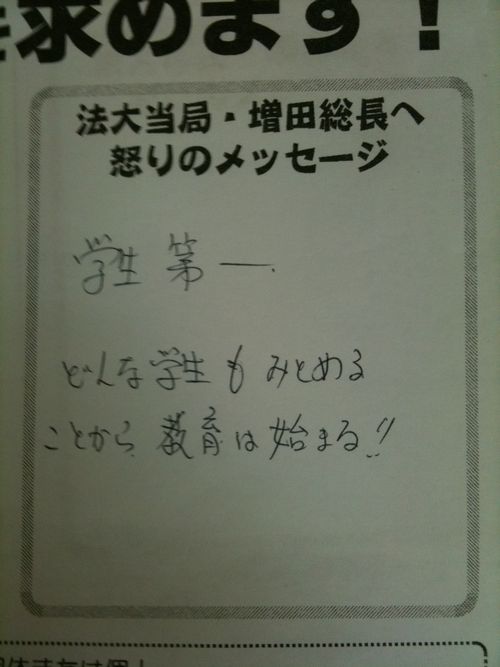 を求めます！
法大当局・増田総長へ
怒りのメッセージ
学生 第一.
どんな学生も みとめる
ことから 教育は 始まる!!